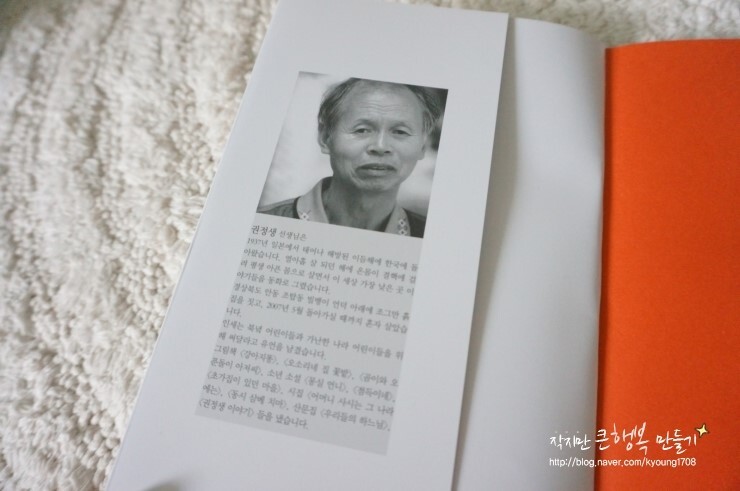 권정생 선생님은
1937년 일본에서 태어나 해방된 이듬해에 한국에 돌
아왔습니다. 열아홉 살 되던 해에 온몸이 결핵에 걸
려 평생 아픈 몸으로 살면서 이 세상 가장 낮은 곳 이
야기들을 동화로 그렸습니다.
경상북도 안동 조탑동 빌뱅이 언덕 아래에 조그만 흙
집을 짓고, 2007년 5월 돌아가실 때까지 혼자 살았습
니다.
인세는 북녘 어린이들과 가난한 나라 어린이들을 위
해 써달라고 유언을 남겼습니다.
그림책 《강아지똥》, 《오소리네 집 꽃밭》, 《곰이와 오
푼돌이 아저씨》, 소년 소설 《몽실 언니》, 《점득이네》,
《초가집이 있던 마을》, 시집 《어머니 사시는 그 나라
에는》, 《동시 삼베 치마》, 산문집 《우리들의 하느님》,
《권정생 이야기》 들을 냈습니다.
작지만 큰 행복 만들기
http://blog.naver.com/kyoung1708